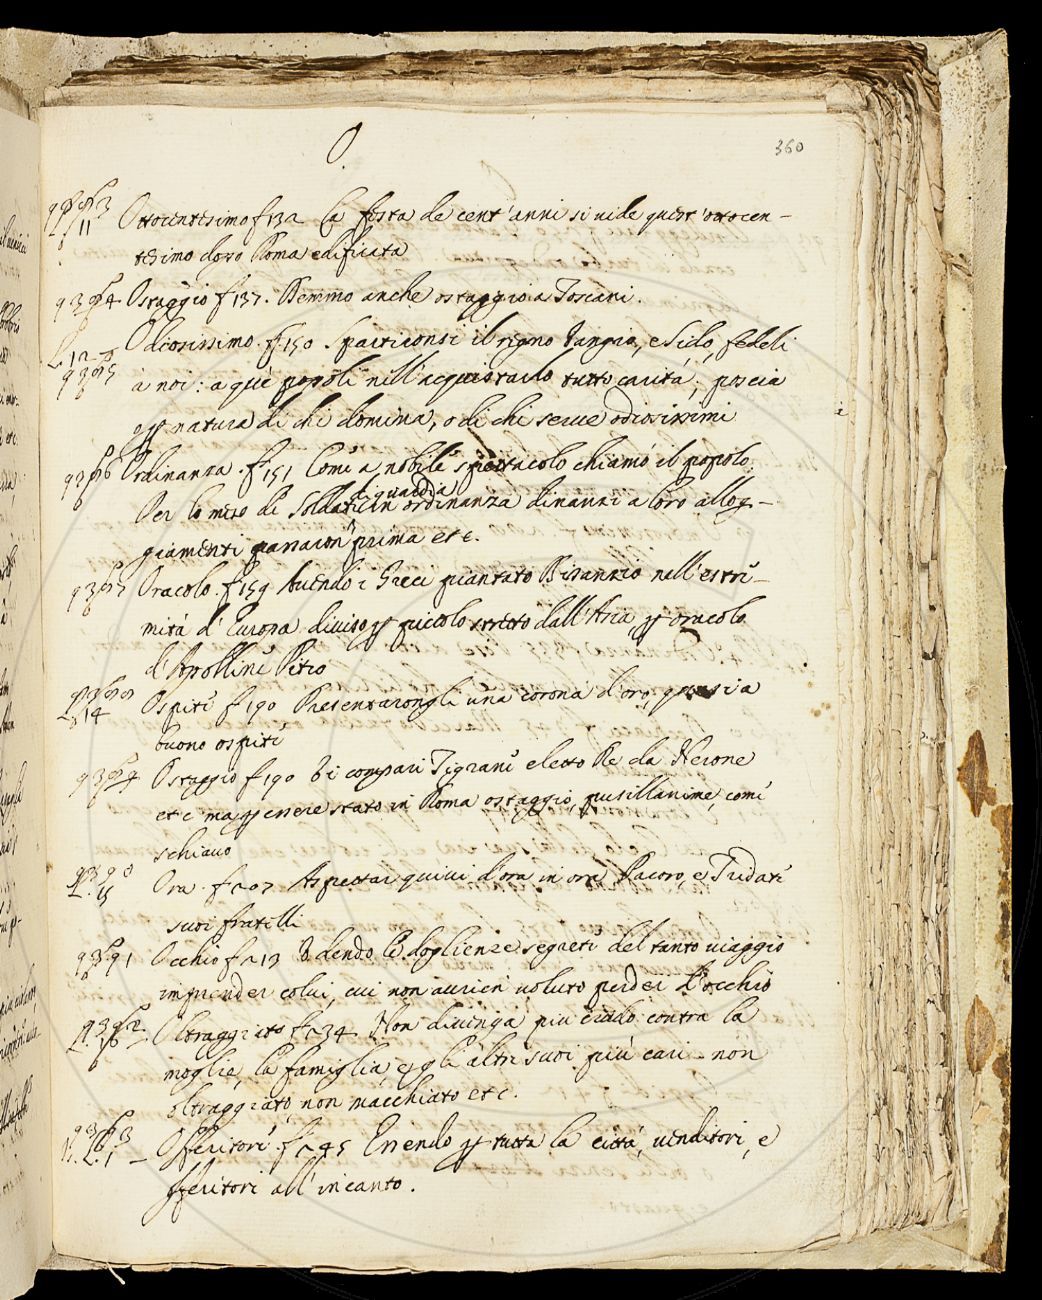 O.
360
11 Ottocentesimo f 132 La festa de cent'anni si vide quest'ottocen-
tesimo dopo Roma edificata
Ostaggio f 137. Demmo anche ostaggio a Toscani.
Odiosissimo. f 150 il regno Vangio, e Sido, fedeli
à noi: a que popoli nell'acquistarlo tutto carità; poscia
natura di chi domina, o di chi serve odiosissimi
Ordinanza. f 151 Come a nobile spettacolo chiamò il popolo.
di guardia
Per lo mezo di Soldati in ordinanza dinanzi a loro allog-
giamenti prima etc.
Oracolo. f 159 Avendo i Greci piantato Bisanzio nell'estre-
mità d'Europa diviso piccolo stretto dall'Asia, oracolo
d'Apolline Pitio
14 Ospite f 190 Presentarongli una corona d'oro,
buono ospite
Ostaggio f 190 Vi compari Tigrane eletto Re da Nerone
etc ma essere stato in Roma ostaggio, pusillanime, come
schiavo
15 Ora. f 207 Aspettar quivi d'ora in ora Pacoro, e Tridate
suoi fratelli
Occhio f 213 le doglienze segrete del tanto viaggio
imprender colui, cui non avrien voluto perder d'occhio
Oltraggiato f 234 Non divenga più crudo contra la
moglie, la famiglia, e gli altri suoi più cari non
oltraggiato non macchiato etc.
Offeritori. f 245 Essendo tutta la città, venditori, e
offeritori all'incanto.